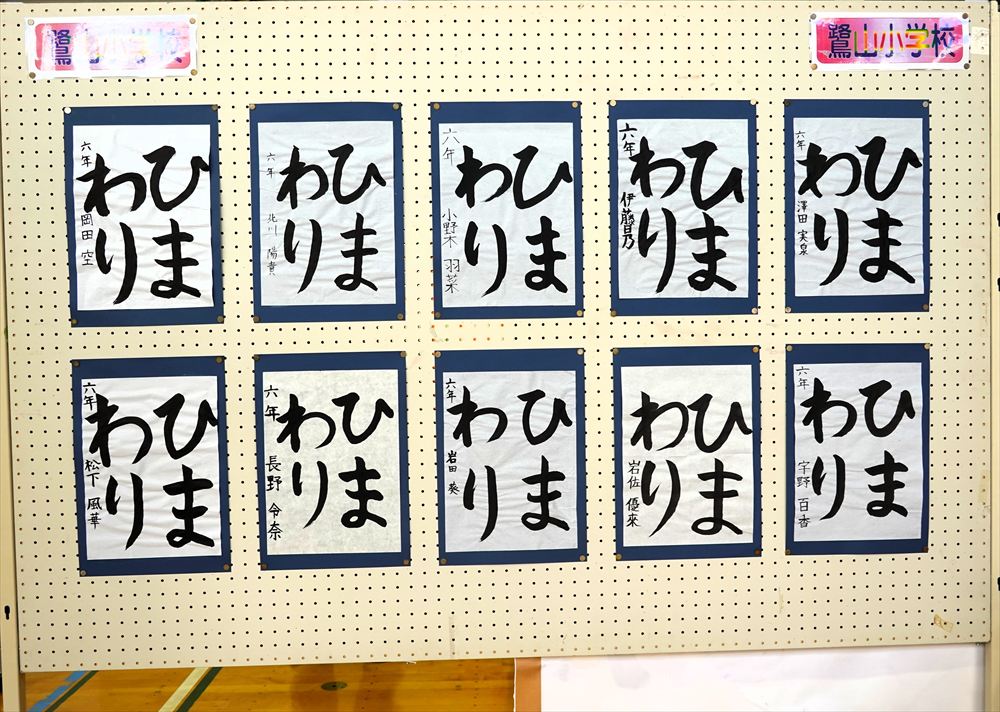 鷺山小学校
鷺山小学校
ひま
わり
六年
岡田 空
ひま
わり
六年
北川 陽貴
ひま
わり
六年
小野木 羽菜
ひま
わり
六年
伊藤日乃
ひま
わり
六年
澤田 実泉
ひま
わり
六年
松下 風華
ひま
わり
六年
長野 令奈
ひま
わり
六年
岩田 葵
ひま
わり
岩佐 優來
ひま
わり
六年
宇野 百香